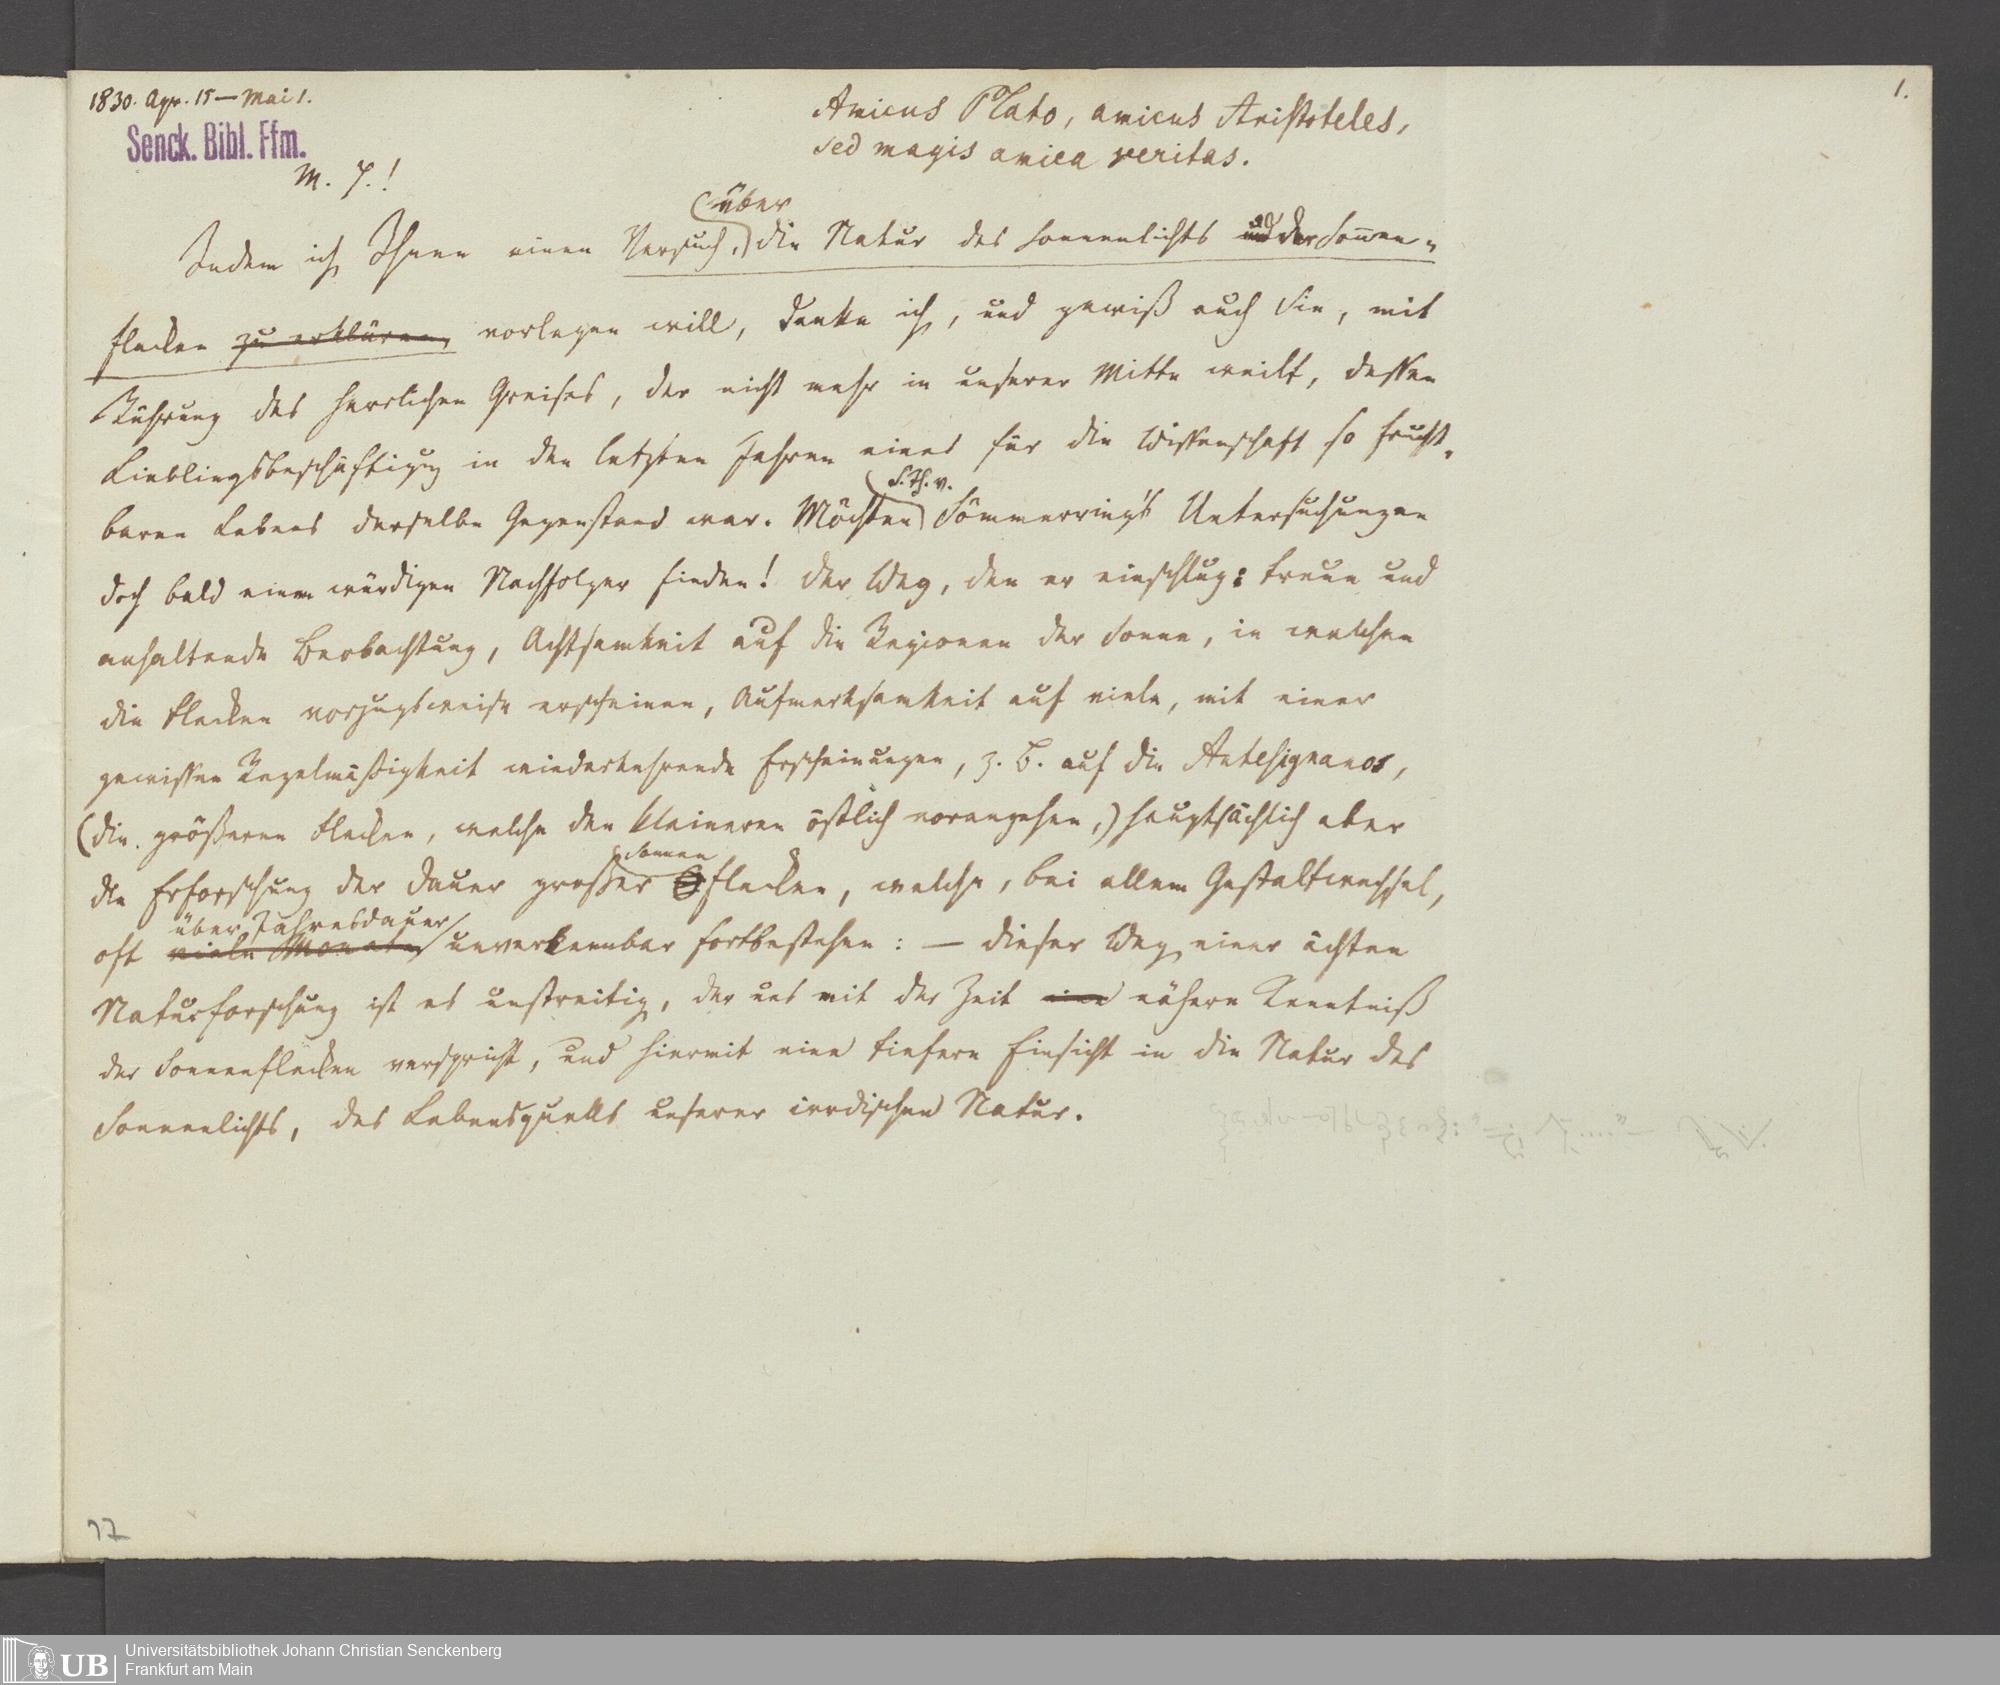 1830. Apr. 15 — Mai 1.
1.
Senck. Bibl. Ffm.
Amicus Plato, amicus Aristoteles,
sed magis amica veritas.
M. H.!
über
Indem ich Ihnen einen Versuch, die Natur des Sonnenlichts und der Sonnen-
flecken zu erklären, vorlegen will, denke ich, und gewiß auch Sie, mit
Rührung des herrlichen Greises, der nicht mehr in unserer Mitte weilt, dessen
Lieblingsbeschäftigung in den letzten Jahren eines für die Wissenschaft so frucht-
S. Th. v.
baren Lebens derselbe Gegenstand war. Möchten Sömmerring's Untersuchungen
doch bald einen würdigen Nachfolger finden! Der Weg, den er einschlug: treue und
anhaltende Beobachtung, Achtsamkeit auf die Regionen der Sonne, in welchen
die Flecken vorzugsweise erscheinen, Aufmerksamkeit auf viele, mit einer
gewissen Regelmäßigkeit wiederkehrende Erscheinungen, z. B. auf die Antesignanos,
(die größeren Flecken, welche den kleineren östlich vorangehen,) hauptsächlich aber
Sonnen
die Erforschung der Dauer großer flecken, welche, bei allem Gestaltwechsel,
über Jahresdauer
oft viele Monate unverkennbar fortbestehen: — dieser Weg einer ächten
Naturforschung ist es unstreitig, der uns mit der Zeit eine nähere Kenntniß
der Sonnenflecken verspricht, und hiermit eine tiefere Einsicht in die Natur des
Sonnenlichts, des Lebensquells unserer irrdischen Natur.
77
UB
Universitätsbibliothek Johann Christian Senckenberg
Frankfurt am Main